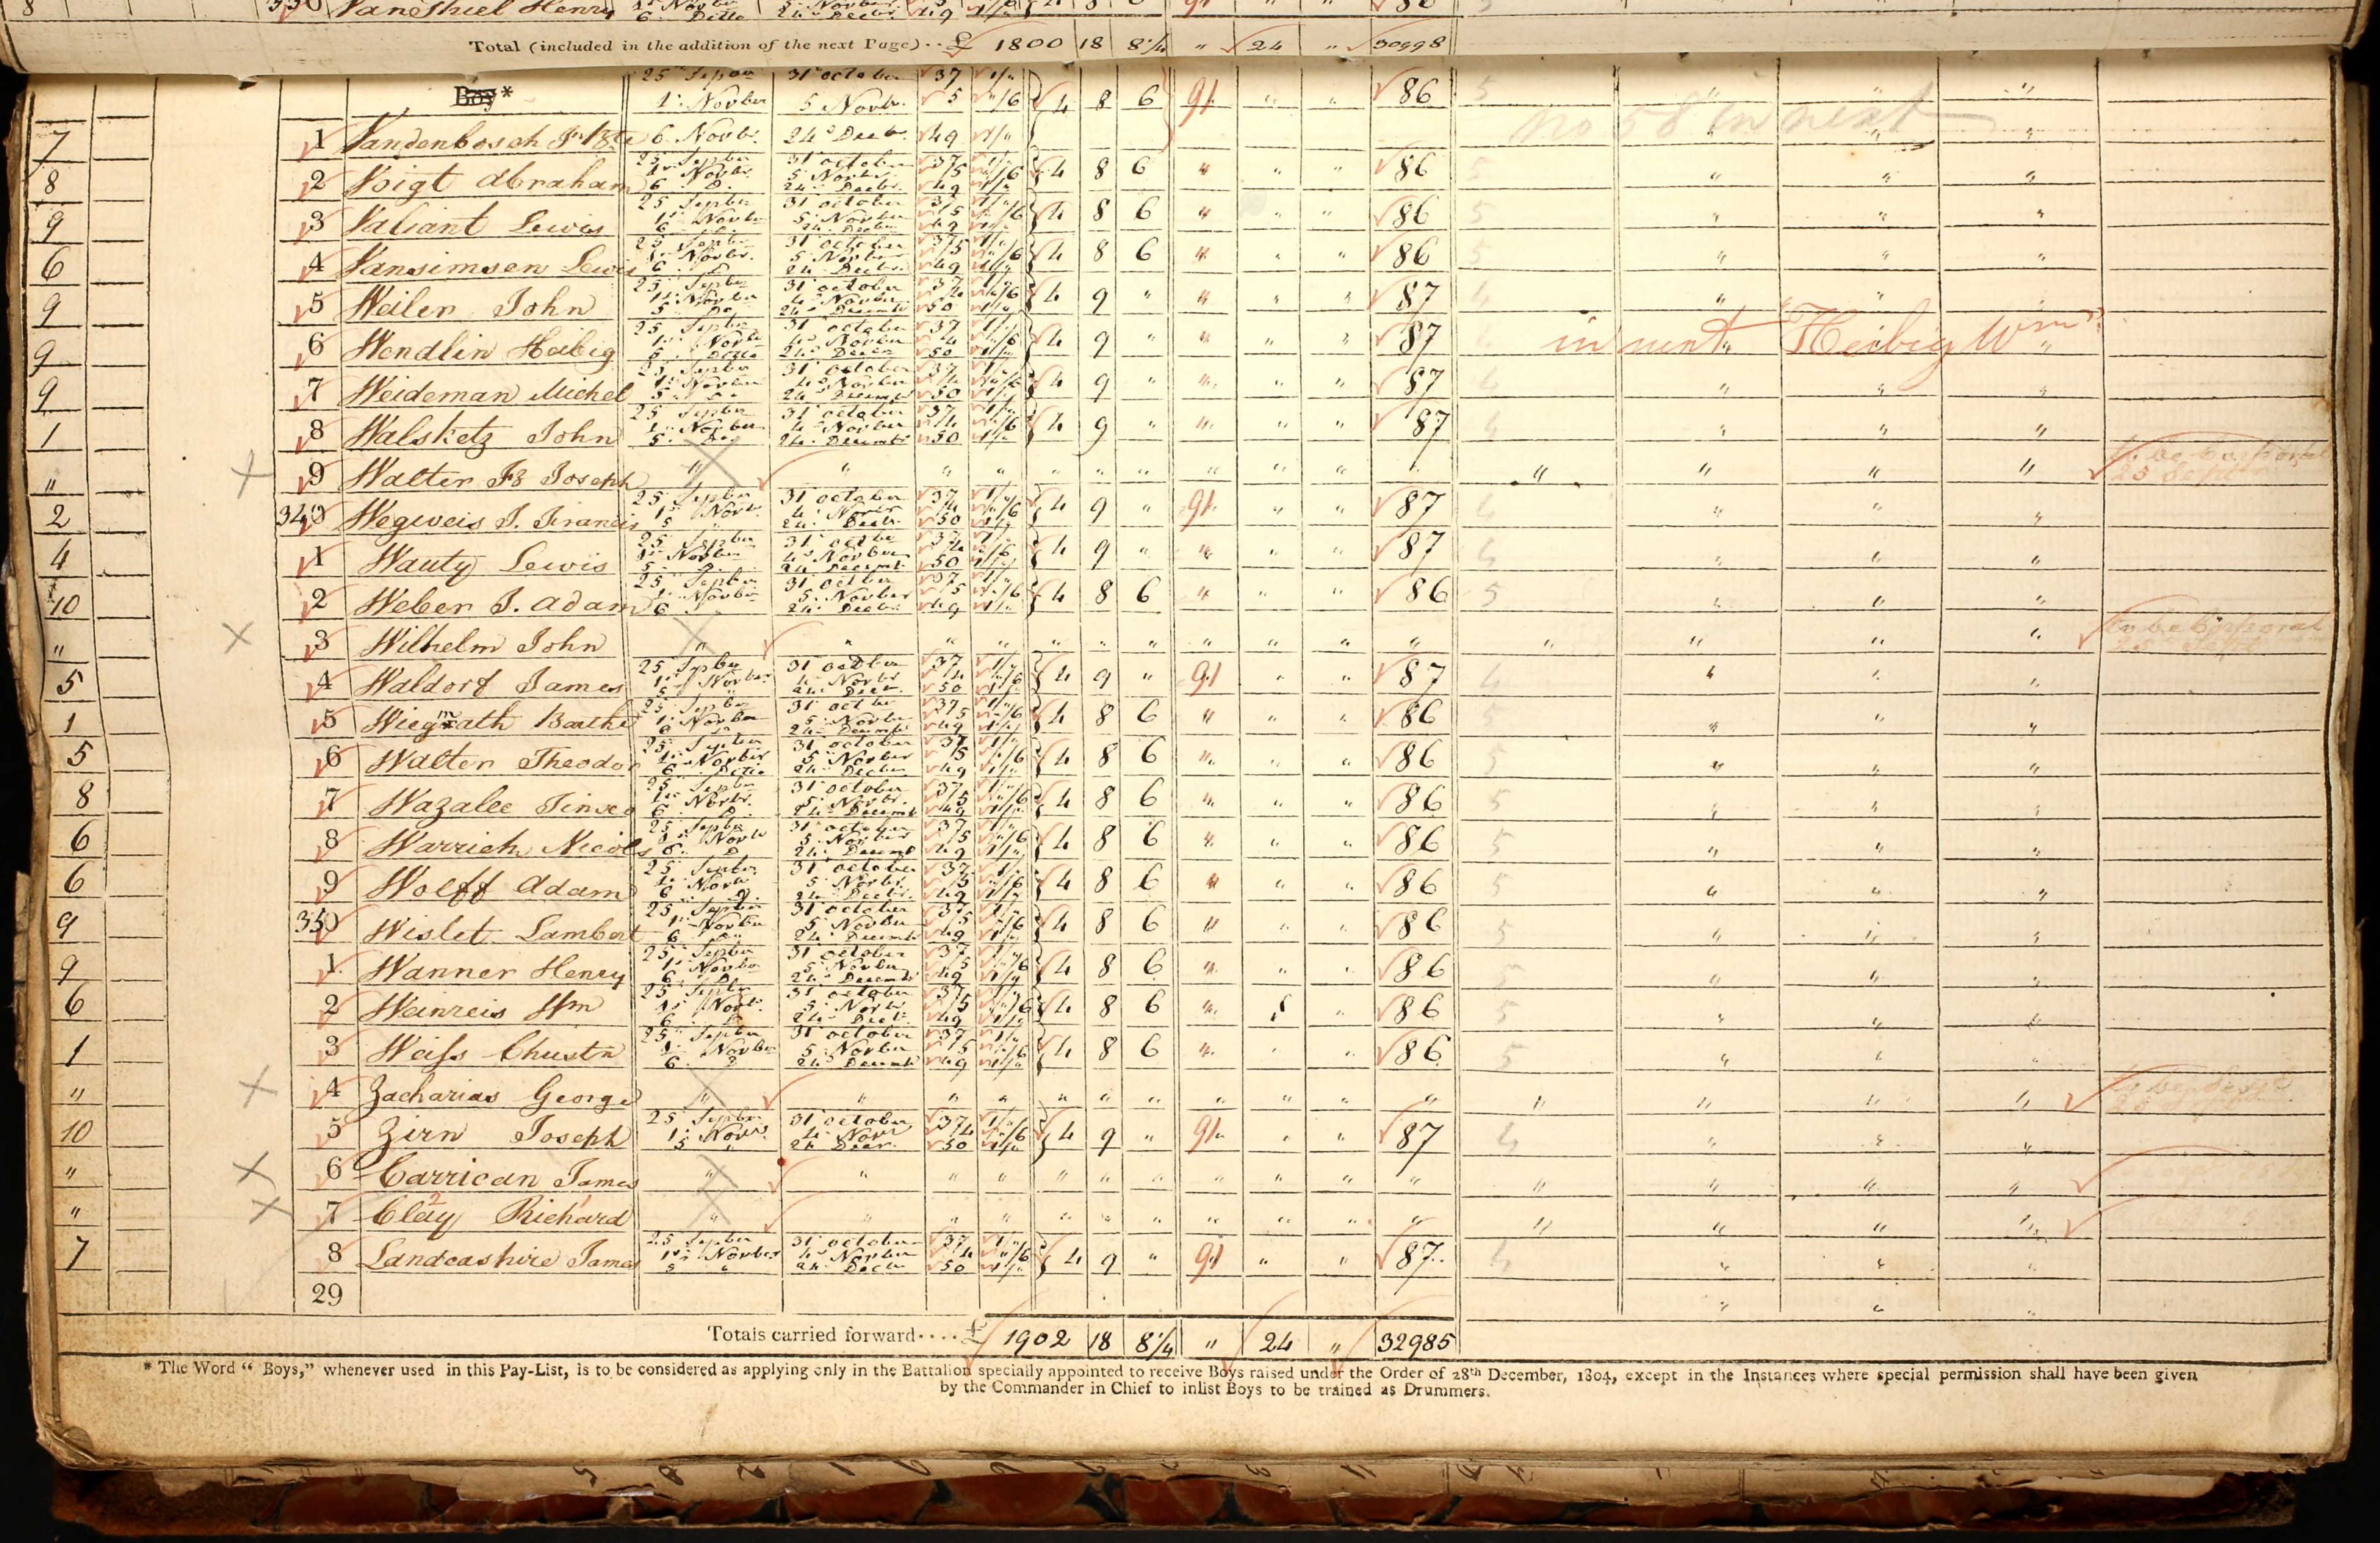 8 330 Vanethiel Henry
6 Ditto 24 Decbr 49
Total (included in the addition of the next Page) .. £ 1800 18 8¼ " 24 " 30998
Boy*
25 Sepber 31 october 37 1/"
1st Novber 5 Novbr. 5 "/6 4 8 6 91 " " 86 5
no 58 in next
7 1 Vandenbosch 6 Novbr. 24 Decbr 49 1/"
8 2 Voigt Abraham 25 Sepber 31 october 37 1/" 4 8 6 " " " 86 5
1st Novbr. 5 Novbr 5 "/6
6 D. 24 Decbr. 49 1/"
9 3 Valiant Lewis 25 Sepber 31 october 37 1/" 4 8 6 " " " 86 5
1st Novber 5 Novber 5 "/6
6 24 Decbr 49 1/"
6 4 Vansimsen Lewis 25 Sepber 31 october 37 1/" 4 8 6 " " " 86 5
1st Novbr. 5 Novber 5 "/6
6 24 Decbr. 49 1/"
9 5 Weiler John 25 Sepber 31 october 37 1/" 4 9 " " " " 87 4
1st Novber 4 Novber 4 "/6
5 Do 24 Decembr 50 1/"
9 6 Wendlin Heibig 25 Sepber 31 october 37 1/" 4 9 " " " " 87 4
1st Novbr 4 Novber 4 "/6
5 Ditto 24 Decbr 50 1/"
in next Heibig Wm
9 7 Weideman Michel 25 Sepber 31 october 37 1/" 4 9 " " " " 87 4
1st Novber 4 Novber 4 "/6
5 24 Decembr 50 1/"
1 8 Walsketz John 25 Sepber 31 october 37 1/" 4 9 " " " " 87 4
1st Novber 4 Novber 4 "/6
5 Do 24 Decembr 50 1/"
" 9 Walter Fs Joseph " " " " " " " " " " " " " " " to be Corporal
25 Sept
2 340 Wegweis J. Francis 25 Sepber 31 october 37 1/" 4 9 " 91 " " 87 4
1st Novbr 4 Novbr 4 "/6
5 24 Decbr. 50 1/"
4 1 Wauty Lewis 25 Sepber 31 octbe 37 1/" 4 9 " " " " 87 4
1st Novber 4 Novber 4 "/6
5 24 Decembr 50 1/"
10 2 Weber J. Adam 25 Sepber 31 octber 37 1/" 4 8 6 " " " 86 5
1st Novber 5 Novber 5 "/6
6 24 Decbr 49 1/"
" 3 Wilhelm John " " " " " " " " " " " " " " " to be Corporal
25 Sept
5 4 Waldorf James 25 Sepber 31 octber 37 1/" 4 9 " 91 " " 87 4
1st Novber 4 Novbr 4 "/6
5 24 Decr. 50 1/"
1 5 Wiegmath Barthe 25 Sepber 31 octber 37 1/" 4 8 6 " " " 86 5
1st Novber 5 Novber 5 "/6
6 24 Decembr 49 1/"
5 6 Walter Theodor 25 Sepber 31 october 37 1/" 4 8 6 " " " 86 5
1st Novber 5 Novber 5 "/6
6 Ditto 24 Decber 49 1/"
8 7 Wazalee 25 Sepber 31 october 37 1/" 4 8 6 " " " 86 5
1st Novbr. 5 Novbr. 5 "/6
6 D. 24 Decembr 49 1/"
6 8 Warrich Nicols 25 Sepber 31 october 37 1/" 4 8 6 " " " 86 5
1st Novbr 5 Novber 5 "/6
6 D 24 Decembr 49 1/"
6 9 Wolff Adam 25 Sepber 31 october 37 1/" 4 8 6 " " " 86 5
1st Novbr 5 Novbr. 5 "/6
6 24 Decbr. 49 1/"
9 350 Wislet Lambert 25 Sepber 31 october 37 1/" 4 8 6 " " " 86 5
1st Novber 5 Novber 5 "/6
6 24 Decembr 49 1/"
9 1 Wanner Henry 25 Sepber 31 october 37 1/" 4 8 6 " " " 86 5
1st Novber 5 Novber 5 "/6
6 24 Decembr 49 1/"
6 2 Weinreis Wm 25 Sepber 31 october 37 1/" 4 8 6 " " " 86 5
1st Novbr. 5 Novbr 5 "/6
6 24 Decbr. 49 1/"
1 3 Weiss Chustn 25 Sepber 31 october 37 1/" 4 8 6 " " " 86 5
1st Novber 5 Novber 5 "/6
6 24 Decembr 49 1/"
" 4 Zacharias George " " " " " " " " " " " " " " "
10 5 Zirn Joseph 25 Sepber 31 october 37 1/" 4 9 " 91 " " 87 4
1st Novbr. 4 Novr 4 "/6
5 24 Decr. 50 1/"
" 6 Carrican James " " " " " " " " " " " " " " "
" 7 Clay Richard " " " " " " " " " " " " " " "
7 8 Landcashire James 25 Sepber 31 october 37 1/" 4 9 " 91 " " 87 4
1st Novber 4 Novber 4 "/6
5 24 Decbr 50 1/"
29
Totals carried forward .... £ 1902 18 8¼ " 24 " 32985
* The Word “ Boys,” whenever used in this Pay-List, is to be considered as applying only in the Battalion specially appointed to receive Boys raised under the Order of 28th December, 1804, except in the Instances where special permission shall have been given
by the Commander in Chief to inlist Boys to be trained as Drummers.